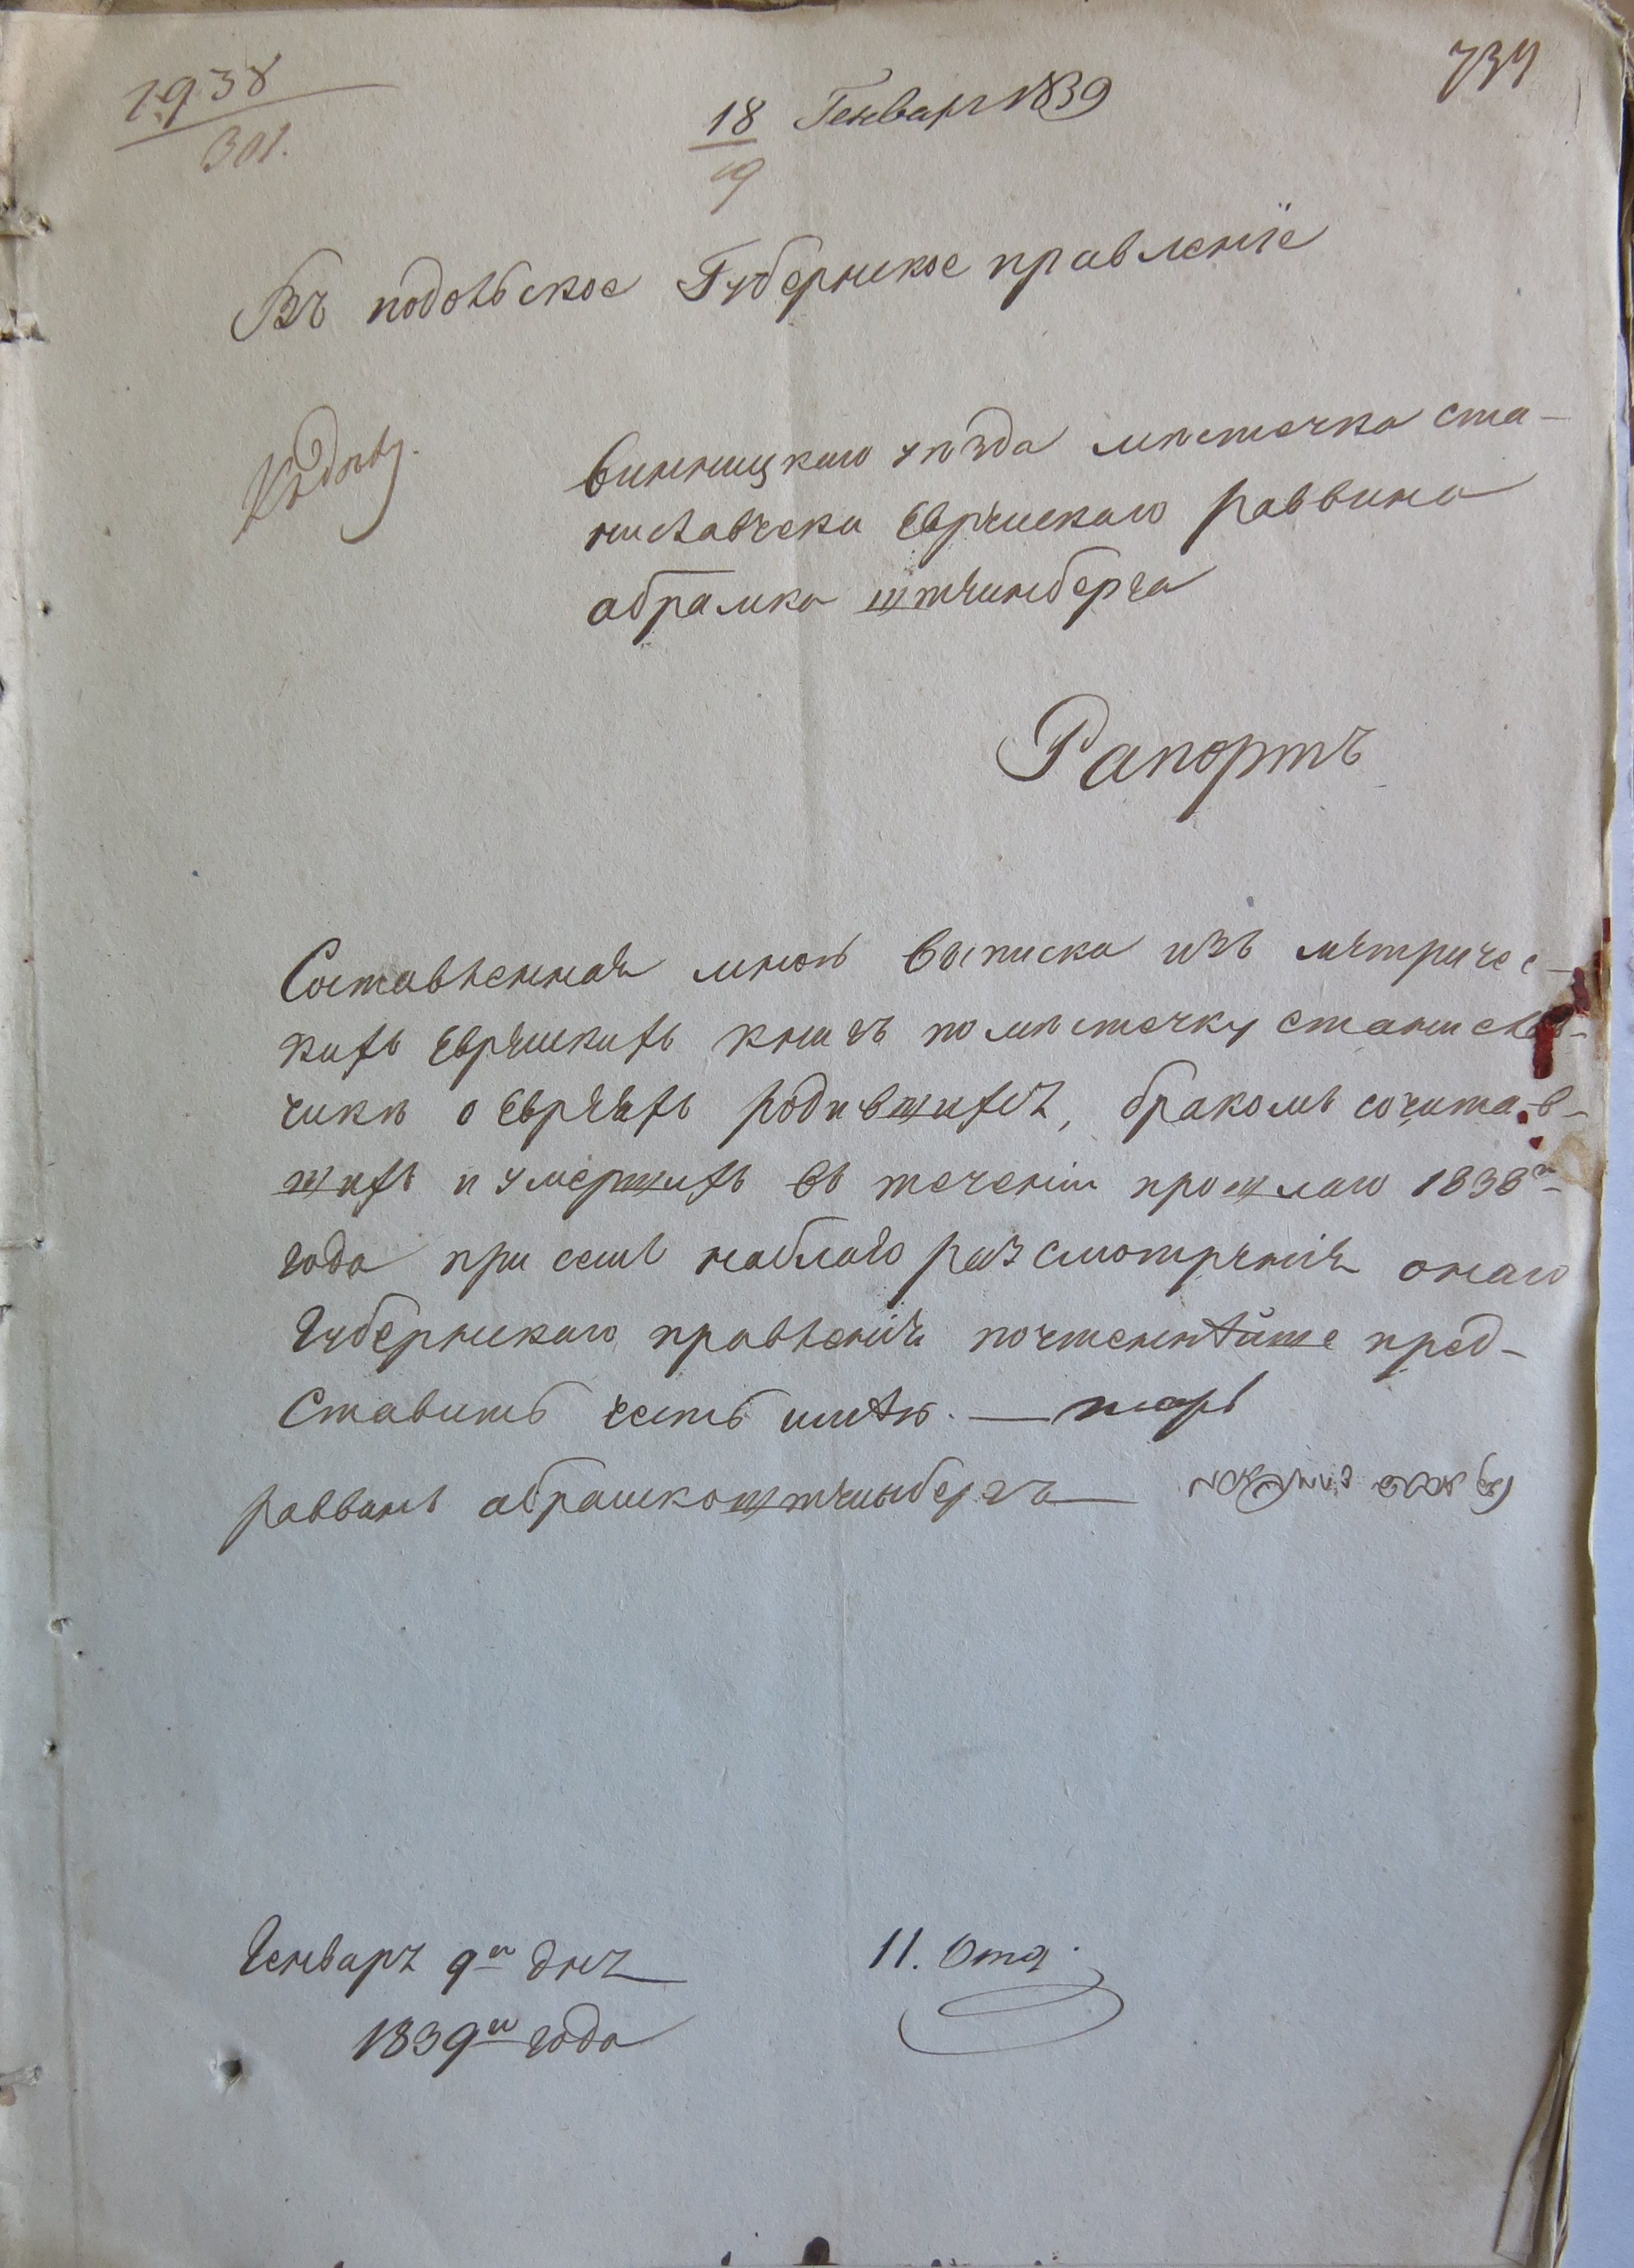 1938
301.
734
18 Генваря 1839
19
Въ подольское Губернское правленіе
Къ дѣлу.
винницкаго уѣзда мѣстечка ста-
ниславчека Еврѣискаго раввина
абрамка штѣинберга
Рапортъ
Составленная мною выписка изъ мѣтричес-
кихъ Еврѣискихъ книгъ по мѣстечку станислав-
чикѣ о Еврѣяхъ родившихся, бракомъ сочитав-
шихъ и умершихъ въ теченіи прошлаго 1838го
года при семъ на благо разсмотрѣнія онаго
Губернскаго правленія почтеннѣйше пред-
ставить честь имѣю.
раввинъ абрашко штѣинбергъ
Генваря 9го дня
1839го года
11. Отд.